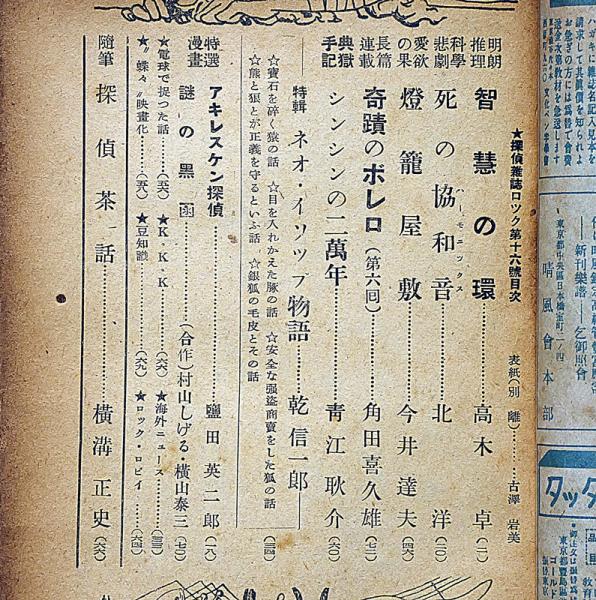 ★探偵雜誌ロツク第十六號目次
表紙（別離）………古澤岩美
明朗推理 智慧の環………高木卓（二）
科學悲劇 死の協和音………北洋（三〇）
ハーモニックス
愛欲の果 燈籠屋敷………今井達夫（四六）
長篇連載 奇蹟のボレロ（第六回）………角田喜久雄（七二）
典獄手記 シンシンの二萬年………靑江耿介（六〇）
特輯 ネオ・イソツプ物語………乾信一郎（三四）
☆寶石を碎く猿の話 ☆目を入れかえた豚の話 ☆安全な强盜商賣をした狐の話
☆熊と狼とが正義を守るといふ話 ☆銀狐の毛皮とその話
特選漫畫 アキレスケン探偵………鹽田英二郎（一八）
謎の黑函………（合作）村山しげる・橫山泰三（七〇）
★電球で捉つた話………（六六） ★K、K、K………（六六） ★海外ニュース………（三三）
★〝蝶々〟映畫化………（五八） ★豆知識………（六九） ★ロック・ロビイ………（六四）
隨筆 探偵茶話………橫溝正史（六六）
ハガキに雜誌名記入見本を
請求して其眞價を知られよ
お急ぎの方には爲替で會費
送金次第敎材を急送します
―新刊樂譜― 乞御照會
東京都中央區日本橋室町二ノ四
晴風會本部
タッタ